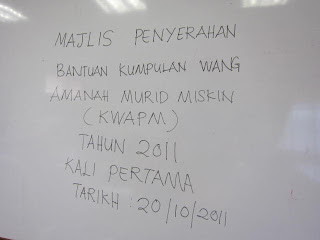 MAJLIS PENYERAHAN
BANTUAN KUMPULAN WANG
AMANAH MURID MISKIN
(KWAPM)
TAHUN 2011
KALI PERTAMA
TARIKH : 20/10/2011